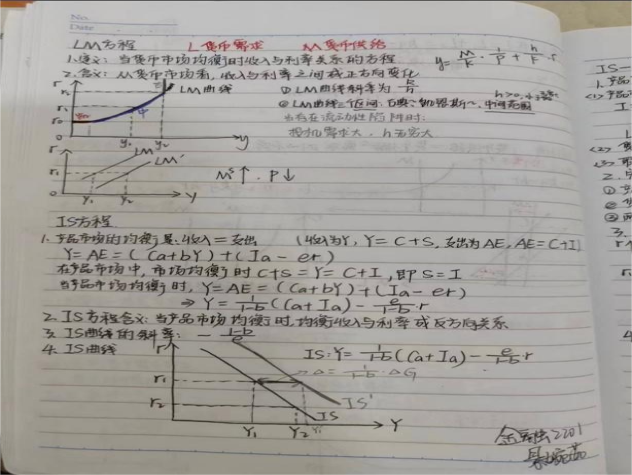 No.
Date
LM方程 L货币需求 M货币供给
1.定义：当货币市场均衡时收入与利率关系的方程
y = M/k · 1/P + h/k · r
2.含义：从货币市场看，收入与利率之间成正方向变化
LM曲线 ①LM曲线斜率为 k/h
②LM曲线三区间：
中间范围
当存在流动性陷阱时：
投机需求大，h无穷大
r
r₂
r₁
r₀
0 y₁ y₂ y
r LM LM'
r₁
0 Y₁ Y₂ Y
Mˢ↑ · P↓
IS方程
1.产品市场的均衡是：收入=支出 (收入为Y, Y=C+S, 支出为AE, AE=C+I)
Y=AE=(Ca+bY)+(Ia-er)
在产品市场中，市场均衡时C+S=Y=C+I，即S=I
当产品市场均衡时，Y=AE=(Ca+bY)+(Ia-er)
⇒Y=1/1-b(Ca+Ia)-e/1-b·r
2.IS方程含义：当产品市场均衡时，均衡收入与利率成反方向关系
3.IS曲线的斜率：-1-b/e
4.IS曲线 r IS:Y=1/1-b(Ca+Ia)-e/1-b r
△=1/1-b·△G
r₁
r₂
IS'
IS
Y₁ Y₂ Y₁' Y
2201